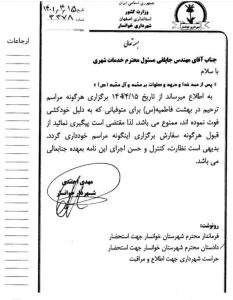 جمهوری اسلامی ایران
وزارت کشور
استانداری اصفهان
شهرداری خوانسار
۱۴۰۱
۳۳۷۸
ارجاعات
بسمه تعالی
جناب آقای مهندس جاپلقی مسئول محترم خدمات شهری
با سلام
« پس از حمد خدا و درود و صلوات بر محمد و آل محمد (ص) »
به اطلاع میرساند از تاریخ ۱۴۰۲/۲/۱۵ برگزاری هرگونه مراسم
ترحیم در بهشت فاطمیه(س) برای متوفیانی که به دلیل خودکشی
فوت نموده اند، ممنوع می باشد. لذا مقتضی است پیگیری نمائید از
قبول هرگونه سفارش برگزاری اینگونه مراسم خودداری گردد.
بدیهی است نظارت، کنترل و حسن اجرای این نامه بعهده جنابعالی
می باشد.
مهدی
شهردار خوانسار
رونوشت:
فرماندار محترم شهرستان خوانسار جهت استحضار
دادستان محترم شهرستان خوانسار جهت استحضار
حراست شهرداری جهت اطلاع و مراقبت